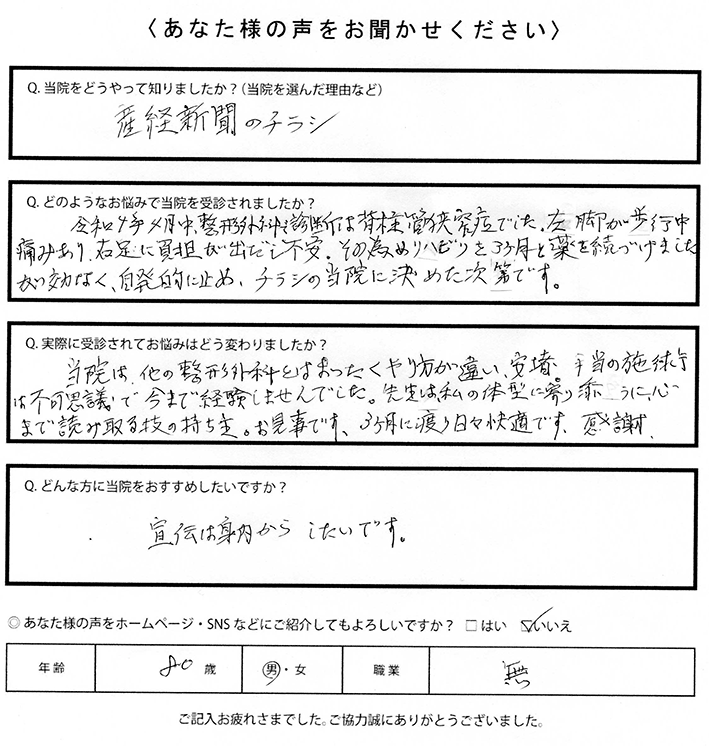 〈あなた様の声をお聞かせください〉
Q. 当院をどうやって知りましたか？（当院を選んだ理由など）
産経新聞のチラシ
Q. どのようなお悩みで当院を受診されましたか？
令和 年 月中、整形外科診断は脊柱管狭窄症でした。左脚が歩行中
痛みあり、右足に負担が出だし不安。その為めリハビリを3ヶ月と薬を続づけました
が効なく、自発的に止め、チラシの当院に決めた次第です。
Q. 実際に受診されてお悩みはどう変わりましたか？
当院は、他の整形外科とはまったくやり方が違い、安堵。手当の施術
は不可思議で今まで経験しませんでした。先生は私の体型に寄り添 うに、心
まで読み取る技の持ち主。お見事です、3ヶ月に渡り日々快適です、感謝、
Q. どんな方に当院をおすすめしたいですか？
宣伝は身内からしたいです。
◎ あなた様の声をホームページ・SNSなどにご紹介してもよろしいですか？ □はい ☑いいえ
年齢 80 歳 男・女 職業 無
ご記入お疲れさまでした。ご協力誠にありがとうございました。